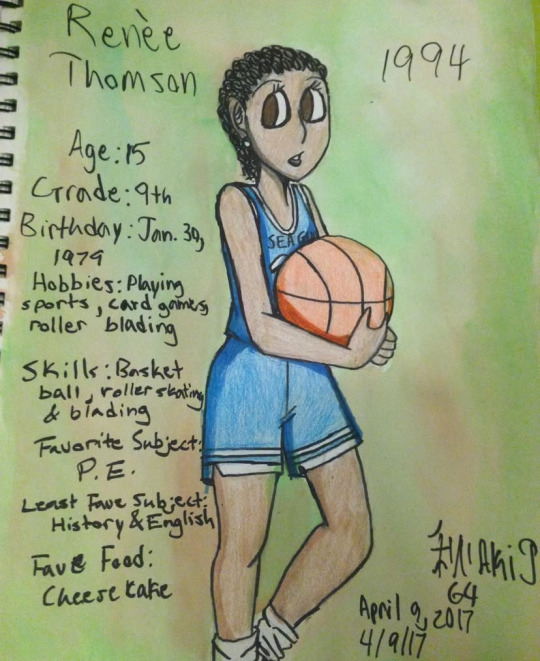 Renèe
Thomson
1994
Age: 15
Grade: 9th
Birthday: Jan. 30,
1979
Hobbies: Playing
sports, card games,
roller blading
Skills: Basket
ball, roller skating
& blading
Favorite Subject:
P.E.
Least Fave Subject:
History & English
Fave Food:
Cheesecake
SEAG
64
April 9, 2017
4/9/17